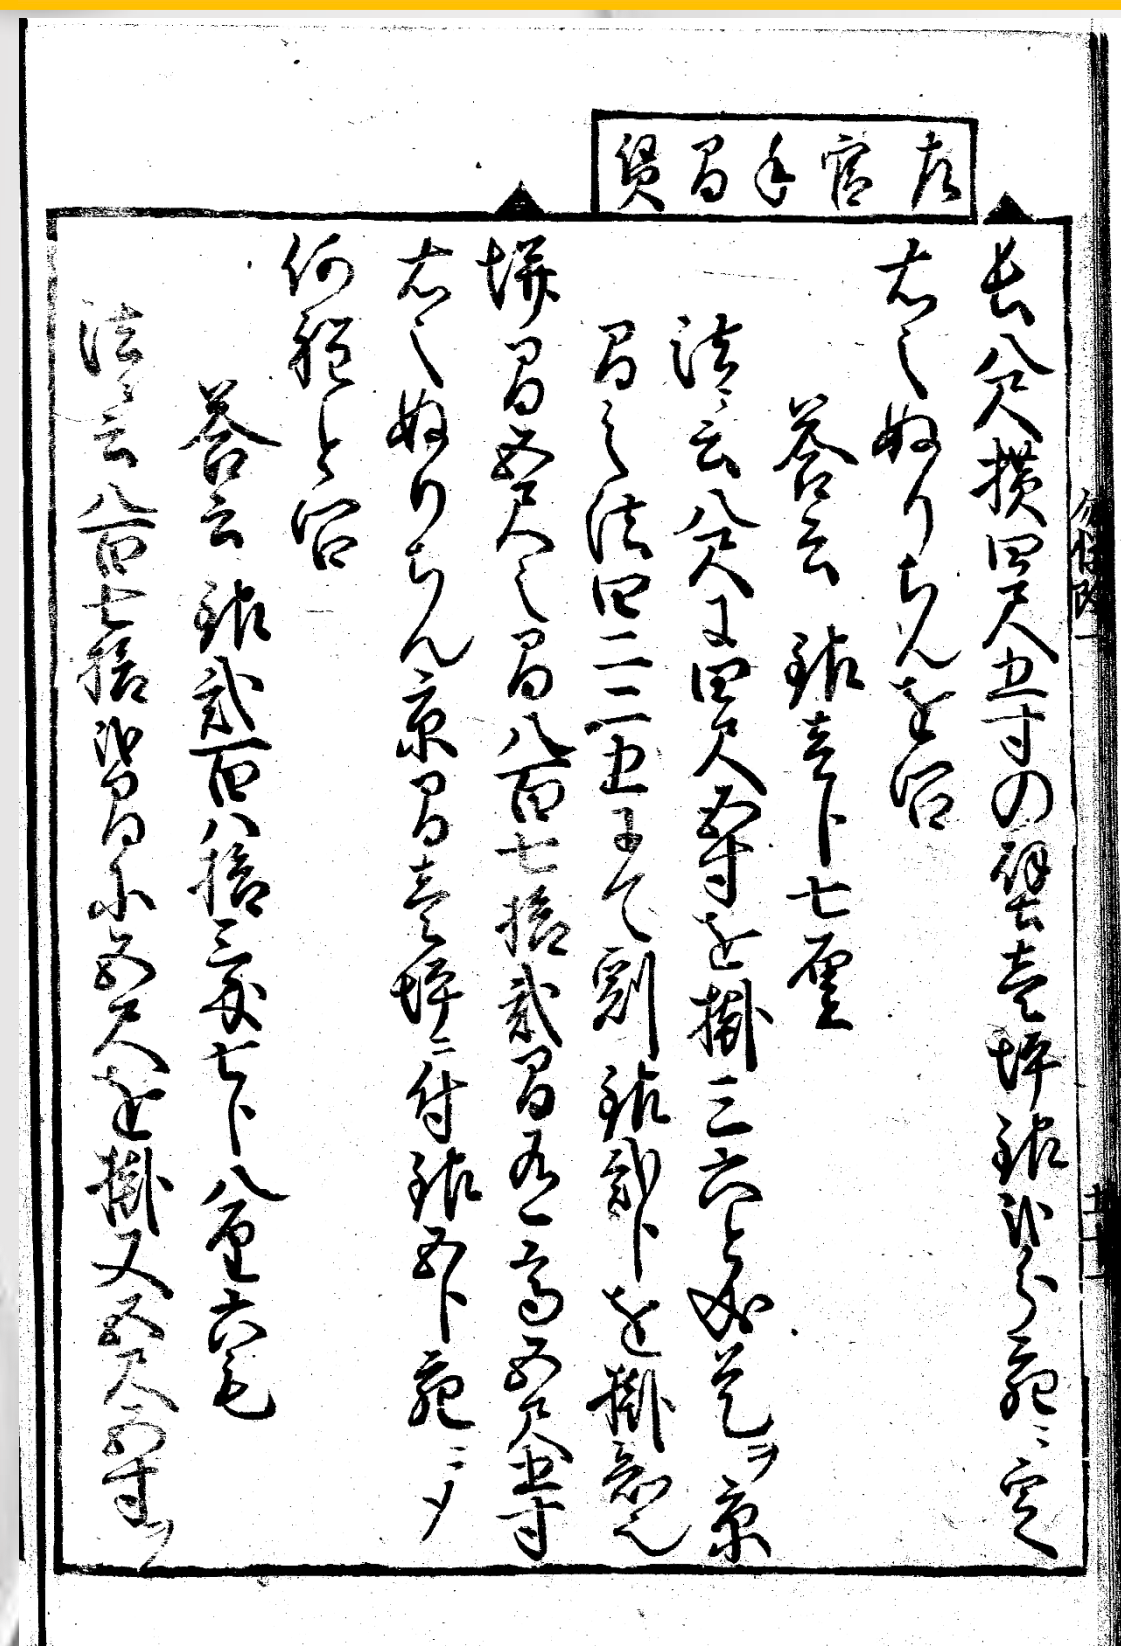 左官手間賃
長八尺横四尺五寸の壁壱坪銀弐分宛ニ定
右之ぬりちんを問
答云 銀壱分七厘
法ニ云八尺に四尺五寸を掛三六と成是ヲ京
間之法四二二五にて割銀弐分を掛知也
塀間五尺之間八百七拾弐間有高五尺五寸
右之ぬりちん京間壱坪ニ付銀五分宛ニ〆
何程と問
答云 銀弐百八拾三匁七分八厘六毛
法ニ云八百七拾弐間に五尺を掛又五尺五寸ヲ